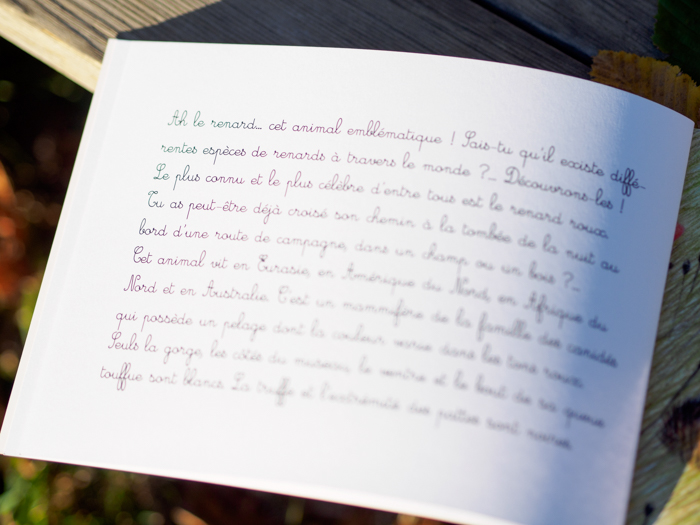 Ah le renard... cet animal emblématique ! Sais-tu qu'il existe diffé-
rentes espèces de renards à travers le monde ?... Découvrons-les !
Le plus connu et le plus célèbre d'entre tous est le renard roux.
Tu as peut-être déjà croisé son chemin à la tombée de la nuit au
bord d'une route de campagne, dans un champ ou un bois ?...
Cet animal vit en Eurasie, en Amérique du Nord, en Afrique du
Nord et en Australie. C'est un mammifère de la famille des canidés
qui possède un pelage dont la couleur varie dans les tons roux.
Seuls la gorge, les côtés du museau, le ventre et le bout de sa queue
touffue sont blancs. La truffe et l'extrémité des pattes sont noires.